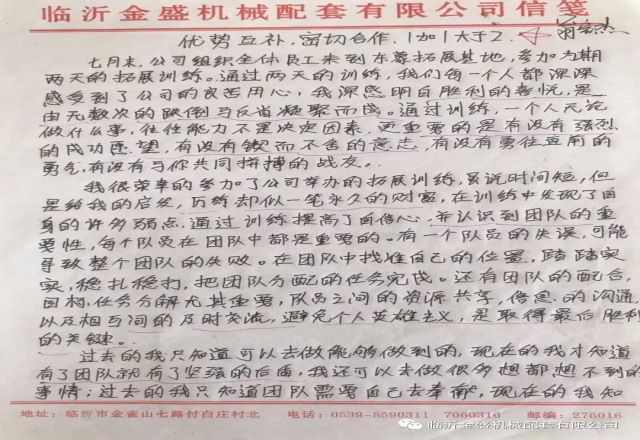 临沂金盛机械配套有限公司信笺
优势互补、密切合作，1加1大于2.
七月末，公司组织全体员工来到东尊拓展基地，参加为期
两天的拓展训练。通过两天的训练，我们每一个人都深深
感受到了公司的良苦用心，我深感明白胜利的喜悦，是
由无数次的跌倒与反省凝聚而成。通过训练，一个人无论
做什么事，往往能力不是决定因素，更重要的是有没有强烈
的成功愿望，有没有锲而不舍的意志，有没有勇往直前的
勇气，有没有与你共同拼搏的战友。
我很荣幸的参加了公司举办的拓展训练，虽说时间短，但
是给我的启发，历练却似一笔永久的财富，在训练中发现了自
身的许多弱点，通过训练提高了自信心，并认识到团队的重
要性，每个队员在团队中都是重要的。有一个队员的失误，可能
导致整个团队的失败。在团队中找准自己的位置，踏踏实
实，稳扎稳打，把团队分配的任务完成。还有团队的配合，
团树，任务分解尤其重要，队员之间的资源共享，信息的沟通，
以及相互间的及时交流，避免个人英雄主义，是取得最后胜利
的关键。
过去的我只知道可以去做能够做到的，现在的我才知道
有了团队就有了坚强的后盾，我还可以去做很多想都想不到的
事情；过去的我只知道团队需要自己去奉献，现在的我知
地址：临沂市金雀山七路付白庄村北 电话：0539-8590311 7060316 邮编：276016
临沂金盛机械配套有限公司